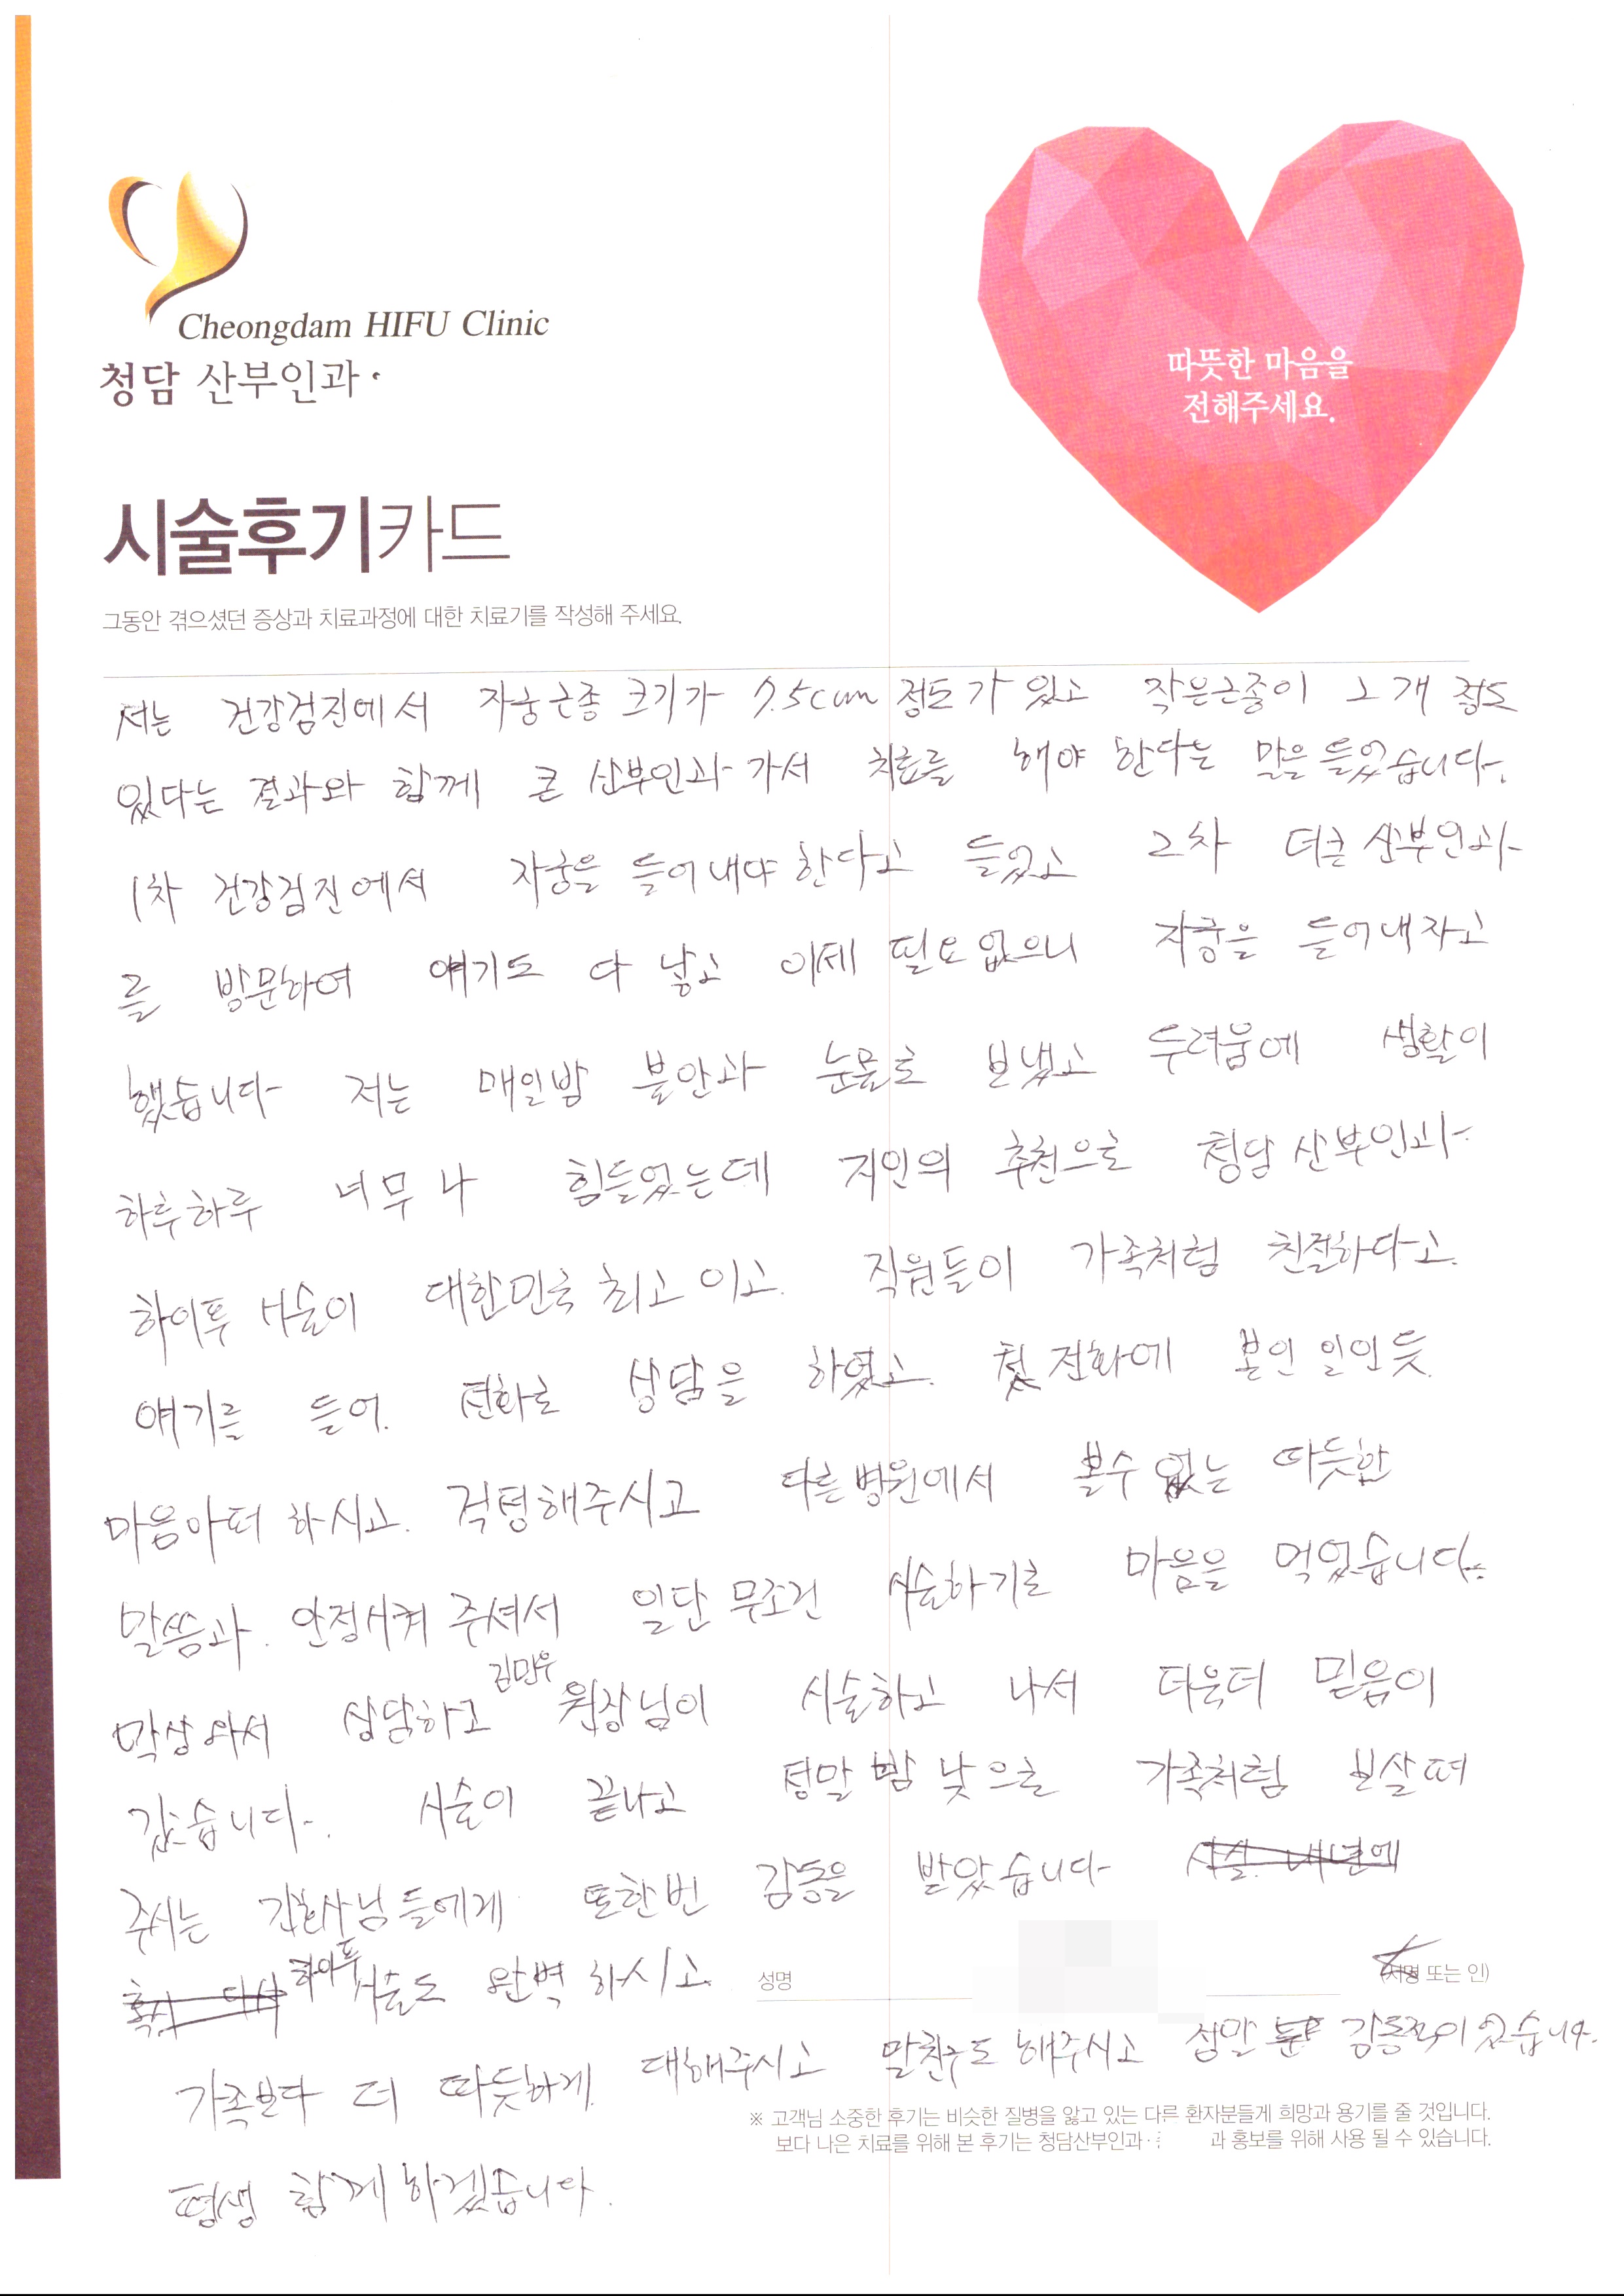 Cheongdam HIFU Clinic
청담 산부인과·
따뜻한 마음을
전해주세요.
시술후기카드
그동안 겪으셨던 증상과 치료과정에 대한 치료기를 작성해 주세요.
저는 건강검진에서 자궁근종 크기가 7.5cm 정도가 있고 작은근종이 2개 정도
있다는 결과와 함께 큰 산부인과 가서 치료를 해야 한다는 말은 들었습니다.
1차 건강검진에서 자궁을 들어내야 한다고 들었고 2차 더큰 산부인과
를 방문하여 얘기도 다 낳고 이제 필요없으니 자궁을 들어내자고
했습니다 저는 매일밤 불안과 눈물로 보냈고 두려움에 생활이
하루하루 너무나 힘들었는데 지인의 추천으로 청담 산부인과
하이푸 시술이 대한민국 최고 이고. 직원들이 가족처럼 친절하다고.
얘기를 들어. 전화로 상담을 하였고. 첫 전화에 본인 일인듯.
마음아퍼 하시고. 걱정해주시고 다른병원에서 볼수 없는 따듯한
말씀과. 안정시켜 주셔서 일단 무조건 시술하기로 마음을 먹었습니다.
막상와서 상담하고 김민우 원장님이 시술하고 나서 더욱더 믿음이
갔습니다. 시술이 끝나고 정말 밤 낮으로 가족처럼 보살펴
주시는 간호사님들에게 또한번 감동을 받았습니다
하이푸 시술도 완벽하시고.
성명
(서명 또는 인)
가족보다 더 따듯하게. 대해주시고 말친구도 해주시고 정말 감동적이었습니다.
※ 고객님 소중한 후기는 비슷한 질병을 앓고 있는 다른 환자분들게 희망과 용기를 줄 것입니다.
보다 나은 치료를 위해 본 후기는 청담산부인과· 과 홍보를 위해 사용 될 수 있습니다.
평생 함께하겠습니다.